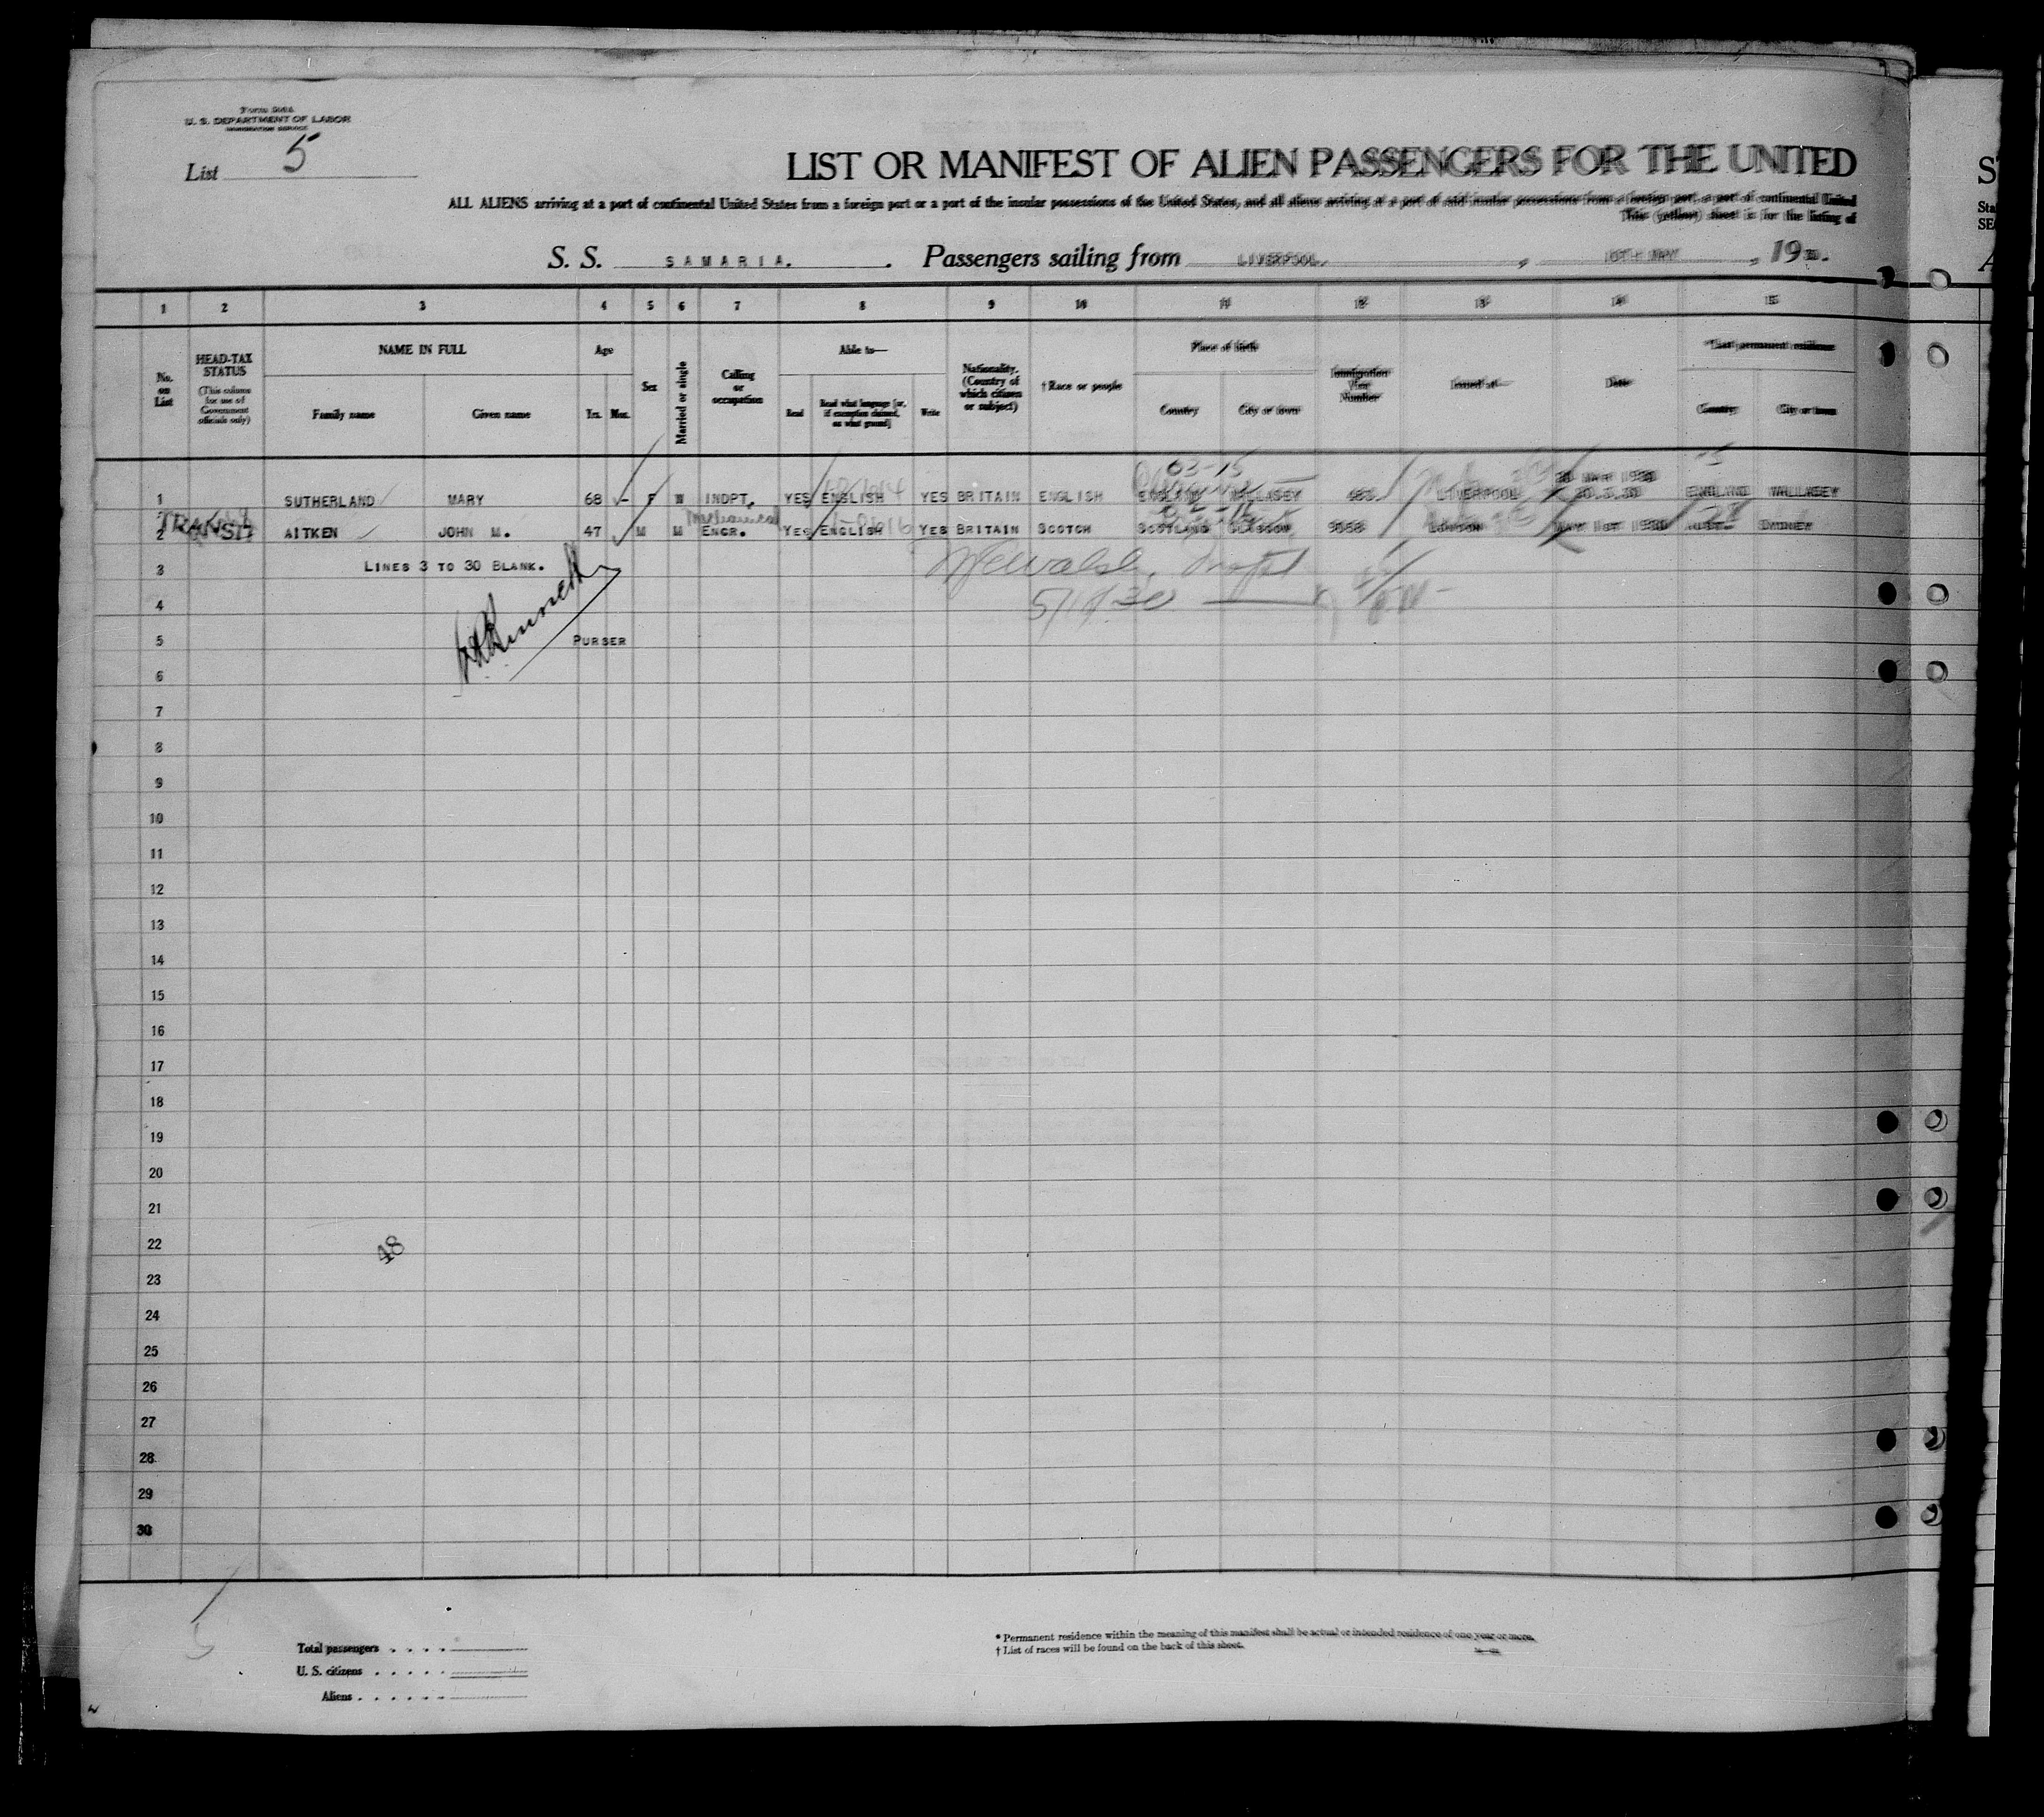 U. S. DEPARTMENT OF LABOR
IMMIGRATION SERVICE
List 5
LIST OR MANIFEST OF ALIEN PASSENGERS FOR THE UNITED
ALL ALIENS arriving at a port of continental United States from a foreign port or a port of the insular possessions of the United States, and all aliens arriving at a port of said insular possessions from a foreign port, a port of continental United
This (yellow) sheet is for the listing of
S. S. SAMARIA. Passengers sailing from LIVERPOOL, 10TH MAY, 1930.
1 2 3 4 5 6 7 8 9 10 11 12 13 14 15
No. on List
HEAD-TAX STATUS (This column for use of Government officials only)
NAME IN FULL
Family name Given name
Age
Yrs. Mos.
Sex
Married or single
Calling or occupation
Able to—
Read Read what language [or, if exemption claimed, on what ground] Write
Nationality. (Country of which citizen or subject)
† Race or people
Place of birth
Country City or town
Immigration Visa Number
Issued at—
Date
*Last permanent residence
Country City or town
03-15
1 SUTHERLAND MARY 68 - F W INDPT. YES ENGLISH YES BRITAIN ENGLISH ENGLAND WALLASEY LIVERPOOL ENGLAND WALLASEY
Mechanical
TRANSIT
2 AITKEN JOHN M. 47 M M ENGR. YES ENGLISH YES BRITAIN SCOTCH SCOTLAND GLASGOW LONDON MAY 1ST 1930 AUST. SYDNEY
3 LINES 3 TO 30 BLANK.
4
5 PURSER
6
7
8
9
10
11
12
13
14
15
16
17
18
19
20
21
22
48
23
24
25
26
27
28
29
30
Total passengers
U. S. citizens
Aliens
* Permanent residence within the meaning of this manifest shall be actual or intended residence of one year or more.
† List of races will be found on the back of this sheet.